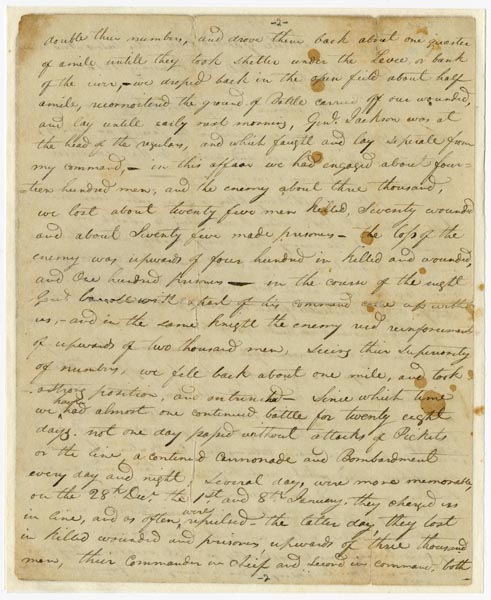 -2-
double thier numbers, and drove them back about one quarter
of a mile untill they took shelter under the Levee or bank
of the river, - we droped back in the open field about half
a mile, reconoitered the ground of Battle carried off our wounded,
and lay until early next morning, Genl. Jackson was at
the head of the regulars, and which faught and lay seperate from
my command, - in this affair we had engaged about four-
teen hundred men, and the enemy about three thousand,
we lost about twenty five men killed, Seventy wounded
and about Seventy five made prisoners - the loss of the
enemy was upwards of four hundred in killed and wounded,
and One hundred prisoners - in the course of the night
Genl. Carroll with a part of his command came up with
us, - and in the same knight the enemy recd reinforcement
of upwards of two thousand men, Seeing thier Superiority
of numbers, we fell back about one mile, and took
a strong position, and entrenched - Since which time
we have had almost one continued battle for twenty eight
days. not one day passed without attacks of Pickets
or the line, a continued Cannonade and Bombardment
every day and night, Several days were more memorable,
on the 28th Decr. the 1st and 8th January. they charged us
in line, and as often were repulsed - the latter day, they lost
in killed wounded and prisoners upwards of three thousand
men, thier Commander in Cheif and Second in command, both
-2-